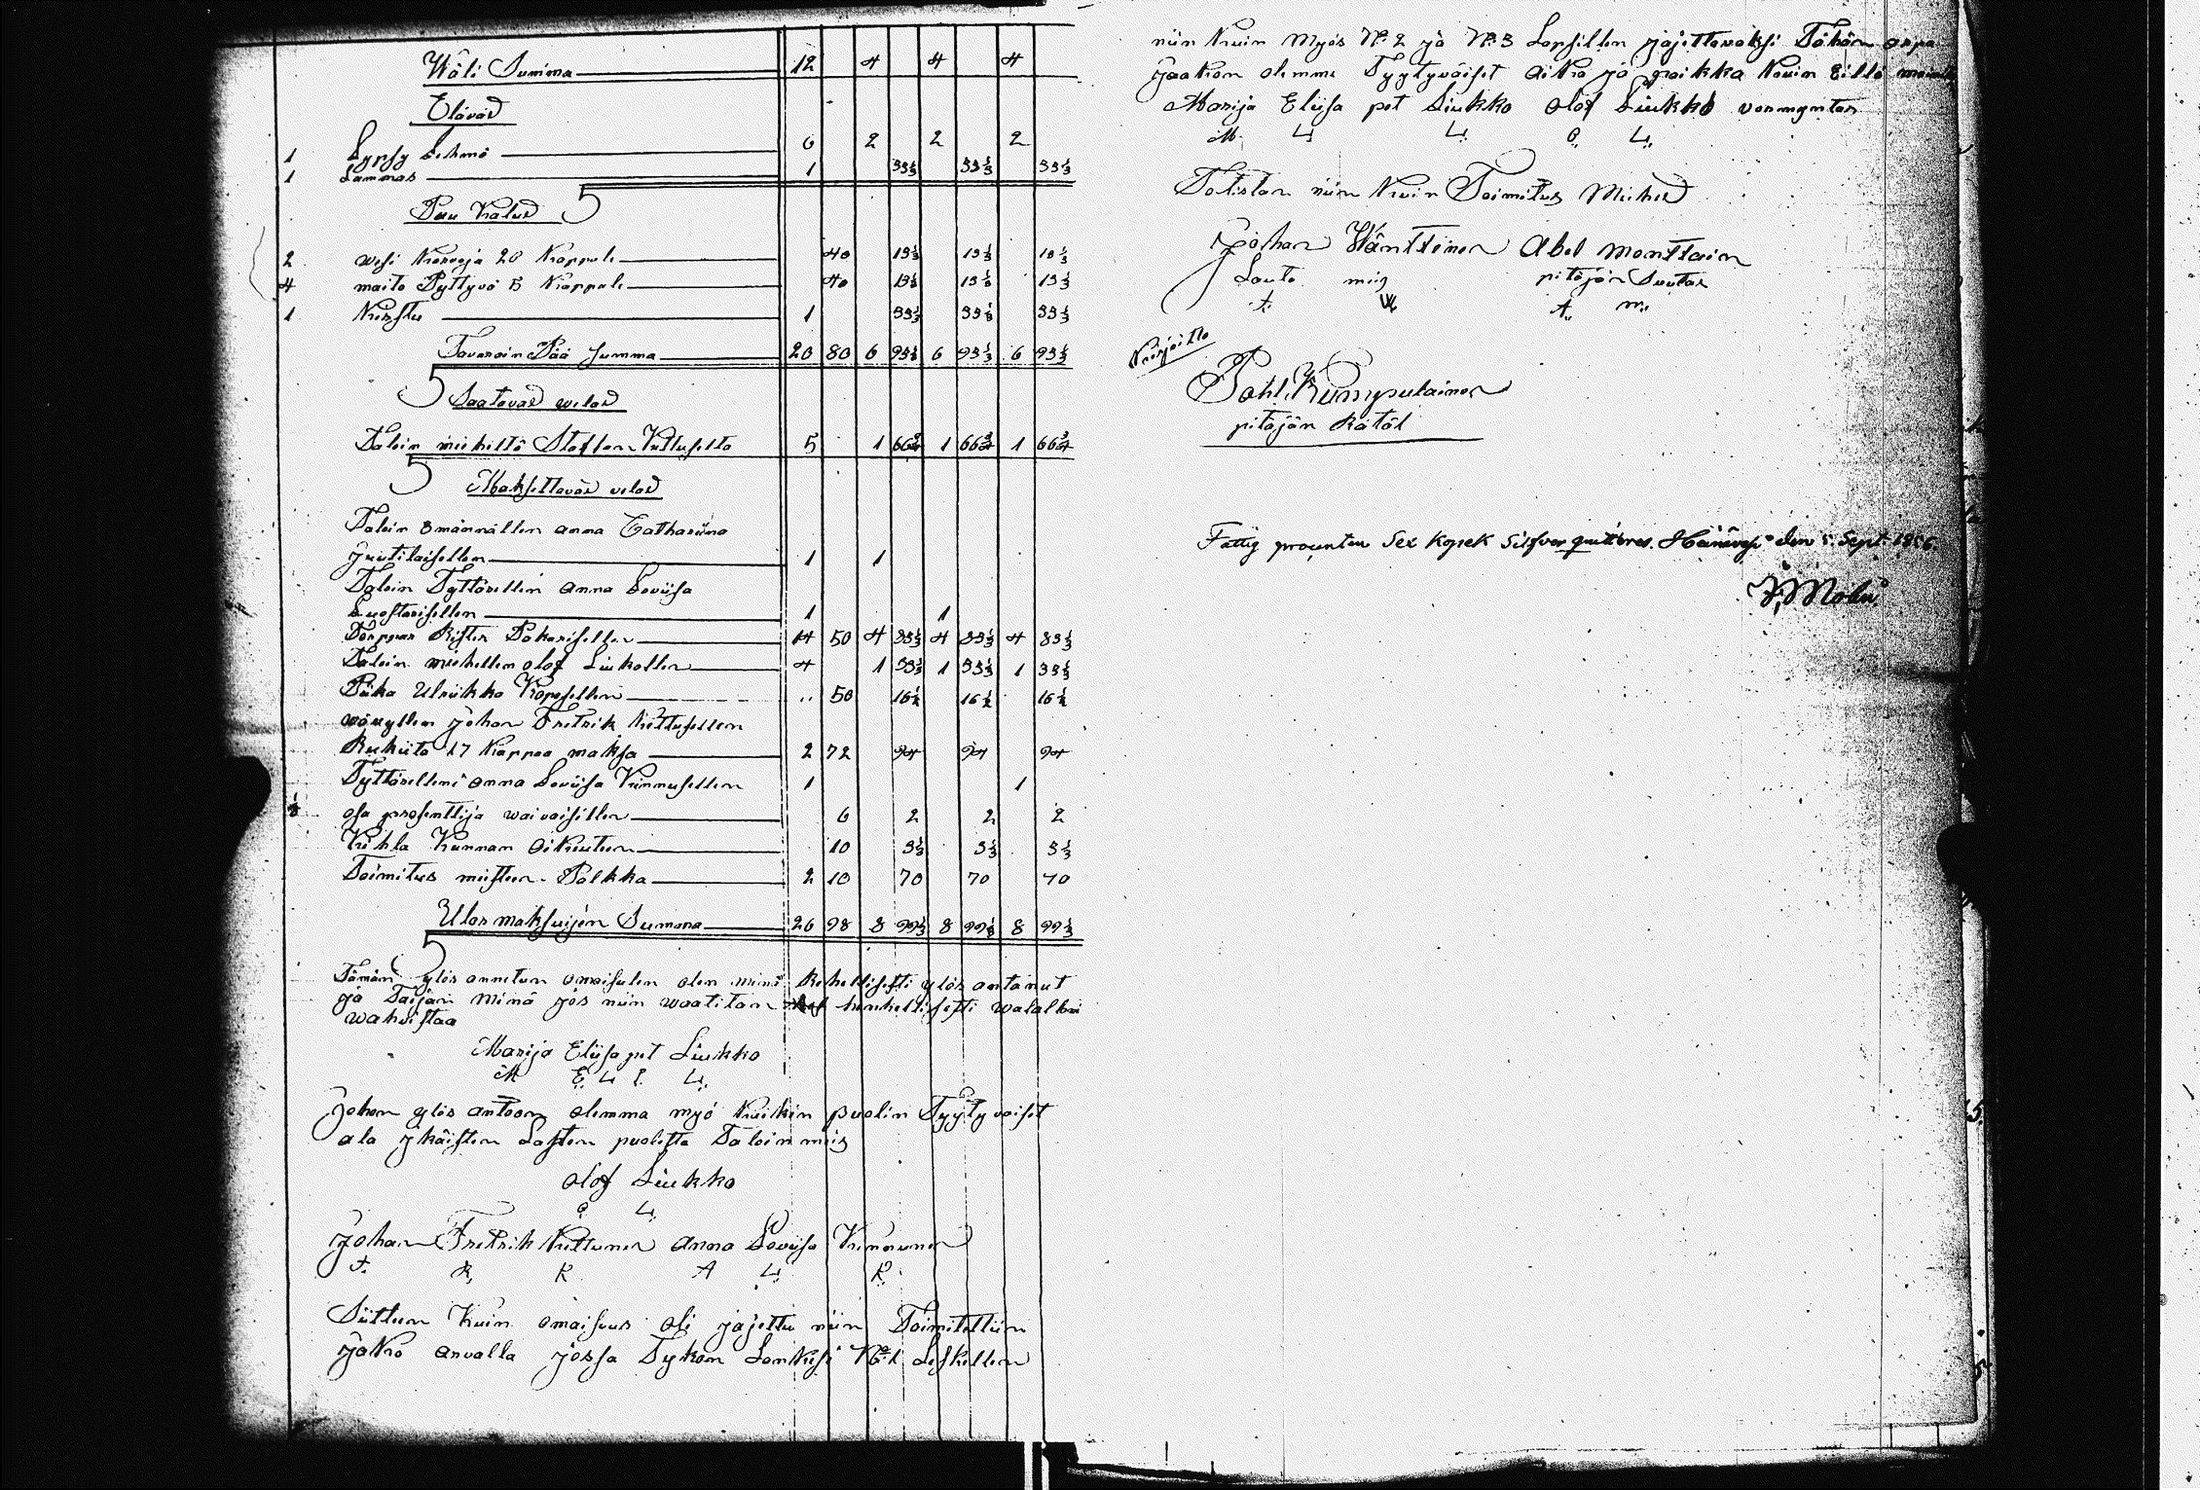 Wäli Summa 12 4 4 4
Eläväd
1 Lypsy Lehmä 6 2 2 2
1 Lammas 1 33⅓ 33⅓ 33⅓
Puu Kalud
2 wesi Korvoja 20 Koppale 40 13⅓ 13⅓ 13⅓
4 maito Pyttyvä 5 Koppale 40 13⅓ 13⅓ 13⅓
1 Kirstu 1 33⅓ 33⅓ 33⅓
Tavarain Pää summa 20 80 6 93⅓ 6 93⅓ 6 93⅓
Saatavad welad
Taloin mieheltä Staffan Kuttuselta 5 1 66¾ 1 66¾ 1 66¾
Maksettavad velad
Taloin Emännällen anna Catharina
Juutilaisellen 1 1
Taloin Tyttärellen Anna Loviisa
Luostarisellen 1 1
Torpvar Rister Pakarisellen 14 50 4 83⅓ 4 83⅓ 4 83⅓
Taloin miehellen olof Liukollen 4 1 33⅓ 1 33⅓ 1 33⅓
Piika Ulriikka Kopposellen 50 16½ 16½ 16½
wävyllen Johan Fretrik Kuttusellen
Rukiita 17 Kappaa maksa 2 72 94 94 94
Tyttärelleni anna Loviisa Kinnusellen 1 1
⅛ osa prosenttija waivaisillen 6 2 2 2
Kihla Kunnan oikeuteen 10 3⅓ 3⅓ 3⅓
Toimitus miesten Palkka 2 10 70 70 70
Ulos maksuijen Summa 26 98 8 99⅓ 8 99⅓ 8 99⅓
Tämän ylös annetun omaisuden olen minä Rehellisesti ylös antanut
ja Taijan minä jos niin waatitan henkellisesti walallani
wahvistaa
Marija Eliisa pet Liukko
M E L P. L.
Johon ylös antoon olemma myö Kuikin puolin Tyytyväiset
ala Jkäisten Lasten puolesta Taloin mies
olof Liukko
O L.
Johan Fretrik Kuttunen anna Loviisa Kinnunen
J. R, K A L. K.
Siitten Kuin omaisuus oli jajettu niin Toimitettiin
Jako arvalla jossa Tykön Lankesi No 1 Leskellen
niin Kuin Myös No: 2 ja No: 3 Lapsillen jajettavaksi Tähän arpa
Jaakon olemme Tyytyväiset aika ja paikka Kuin Eillä mainit
Marija Eliisa pet Liukko olof Liukko vormyntar
M. L L. O. L.
Totistan niin Kuin Toimitus Miehed
Johan Hänttinen Abel Monttoin
Lauta mies pitäjän Suutar
J. H. A. m.
Kirjoitta
Pohl. Kumpulainen
pitäjän Rätäl
Fattig procenten Sex kopek Silfver quitteras. Heinävesi den 5. Sept. 1856.